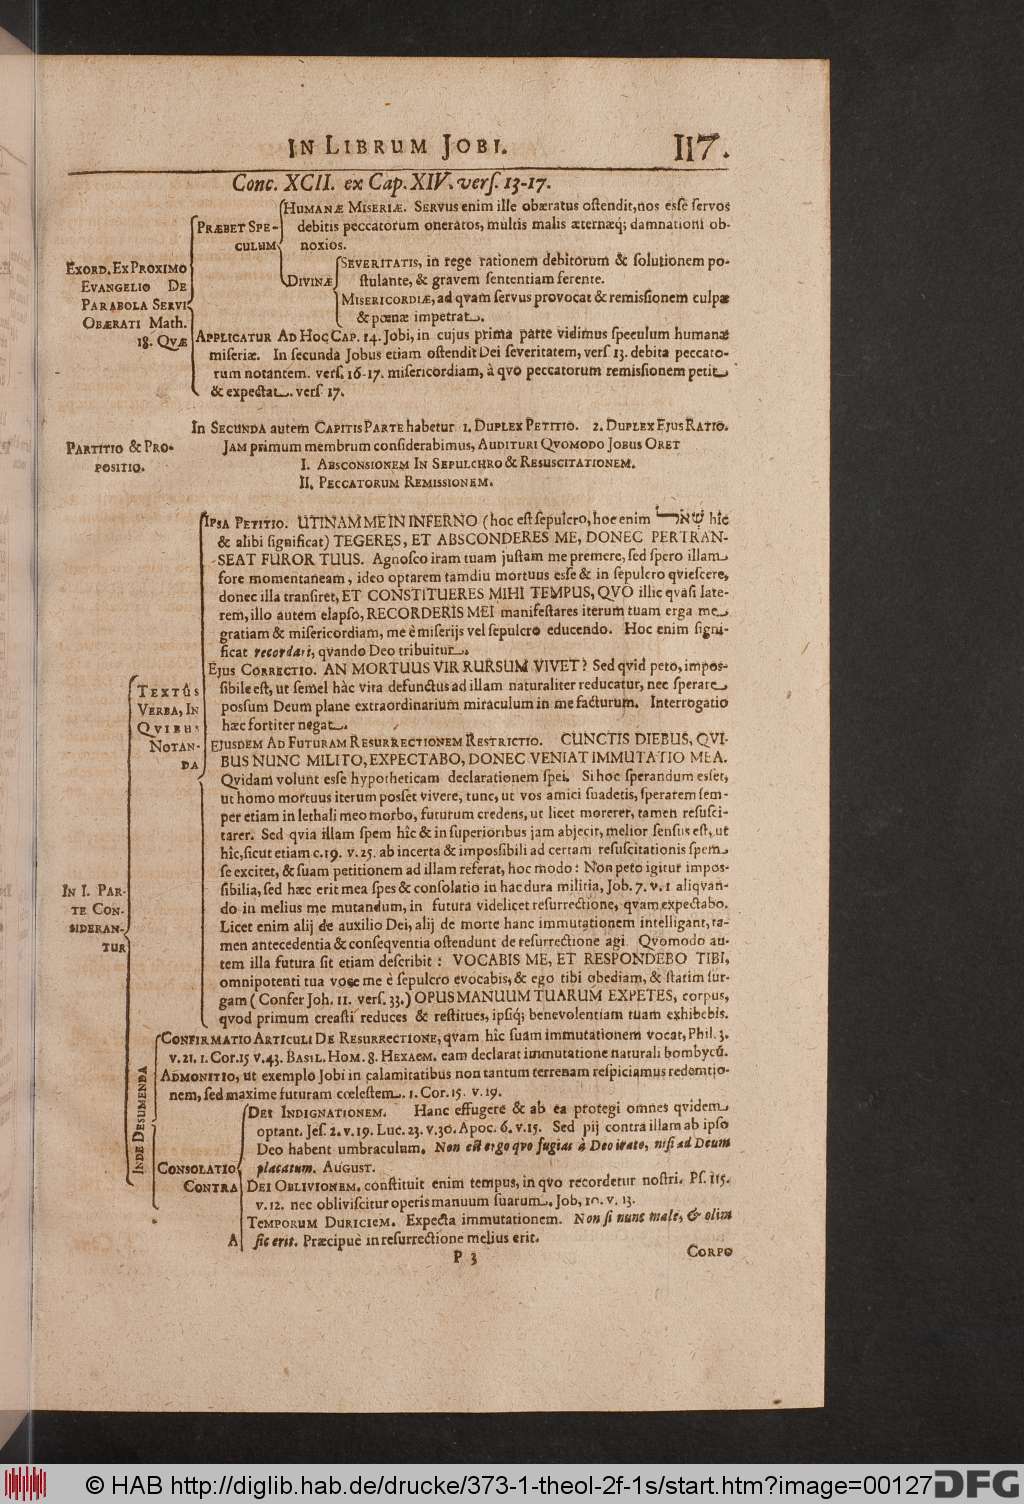 IN LIBRUM JOBI. 117.
Conc. XCII. ex Cap. XIV. vers. 13-17.
EXORD. EX PROXIMO
EVANGELIO DE
PARABOLA SERVI
OBÆRATI Math.
18. QVÆ
PRÆBET SPE-
CULUM
HUMANÆ MISERIÆ. SERVUS enim ille obæratus ostendit, nos esse servos
debitis peccatorum oneratos, multis malis æternæq; damnationi ob-
noxios.
DIVINÆ
SEVERITATIS, in rege rationem debitorum & solutionem po-
stulante, & gravem sententiam ferente.
MISERICORDIÆ, ad qvam servus provocat & remissionem culpæ
& pœnæ impetrat.
APPLICATUR AD HOC CAP. 14. Jobi, in cujus prima parte vidimus speculum humanæ
miseriæ. In secunda Jobus etiam ostendit Dei severitatem, vers 13. debita peccato-
rum notantem. vers. 16-17. misericordiam, à qvo peccatorum remissionem petit
& expectat. vers 17.
PARTITIO & PRO-
POSITIO.
In SECUNDA autem CAPITIS PARTE habetur 1. DUPLEX PETITIO. 2. DUPLEX EJUS RATIO.
JAM primum membrum considerabimus, AUDITURI QVOMODO JOBUS ORET
I. ABSCONSIONEM IN SEPULCHRO & RESUSCITATIONEM.
II. PECCATORUM REMISSIONEM.
IN I. PAR-
TE CON-
SIDERAN-
TUR
TEXTÛS
VERBA, IN
QVIBUS
NOTAN-
DA
IPSA PETITIO. UTINAM ME IN INFERNO (hoc est sepulcro, hoc enim שְׁאֹל hîc
& alibi significat) TEGERES, ET ABSCONDERES ME, DONEC PERTRAN-
SEAT FUROR TUUS. Agnosco iram tuam justam me premere, sed spero illam
fore momentaneam, ideo optarem tamdiu mortuus esse & in sepulcro qviescere,
donec illa transiret, ET CONSTITUERES MIHI TEMPUS, QVO illic qvasi late-
rem, illo autem elapso, RECORDERIS MEI manifestares iterum tuam erga me
gratiam & misericordiam, me è miserijs vel sepulcro educendo. Hoc enim signi-
ficat recordari, qvando Deo tribuitur.
EJUS CORRECTIO. AN MORTUUS VIR RURSUM VIVET? Sed qvid peto, impos-
sibile est, ut semel hâc vita defunctus ad illam naturaliter reducatur, nec sperare
possum Deum plane extraordinarium miraculum in me facturum. Interrogatio
hæc fortiter negat.
EJUSDEM AD FUTURAM RESURRECTIONEM RESTRICTIO. CUNCTIS DIEBUS, QVI-
BUS NUNC MILITO, EXPECTABO, DONEC VENIAT IMMUTATIO MEA.
Qvidam volunt esse hypotheticam declarationem spei. Si hoc sperandum esset,
ut homo mortuus iterum posset vivere, tunc, ut vos amici suadetis, sperarem sem-
per etiam in lethali meo morbo, futurum credens, ut licet morerer, tamen resusci-
tarer. Sed qvia illam spem hîc & in superioribus jam abjecit, melior sensus est, ut
hîc, sicut etiam c. 19. v. 25. ab incerta & impossibili ad certam resuscitationis spem
se excitet, & suam petitionem ad illam referat, hoc modo: Non peto igitur impos-
sibilia, sed hæc erit mea spes & consolatio in hac dura militia, Job. 7. v. 1 aliqvan-
do in melius me mutandum, in futura videlicet resurrectione, qvam expectabo.
Licet enim alij de auxilio Dei, alij de morte hanc immutationem intelligant, ta-
men antecedentia & conseqventia ostendunt de resurrectione agi. Qvomodo au-
tem illa futura sit etiam describit: VOCABIS ME, ET RESPONDEBO TIBI,
omnipotenti tua voce me è sepulcro evocabis, & ego tibi obediam, & statim sur-
gam (Confer Joh. 11. vers. 33.) OPUS MANUUM TUARUM EXPETES, corpus,
qvod primum creasti reduces & restitues, ipsiq; benevolentiam tuam exhibebis.
INDE DESUMENDA
CONFIRMATIO ARTICULI DE RESURRECTIONE, qvam hîc suam immutationem vocat, Phil. 3.
v. 21. 1. Cor. 15 v. 43. BASIL. HOM. 8. HEXAEM. eam declarat immutatione naturali bombycû.
ADMONITIO, ut exemplo Jobi in calamitatibus non tantum terrenam respiciamus redemtio-
nem, sed maxime futuram cœlestem. 1. Cor. 15. v. 19.
CONSOLATIO
CONTRA
DEI INDIGNATIONEM. Hanc effugere & ab ea protegi omnes qvidem
optant. Jes. 2. v. 19. Luc. 23. v. 30. Apoc. 6. v. 15. Sed pij contra illam ab ipso
Deo habent umbraculum. Non est ergo qvo fugias à Deo irato, nisi ad Deum
placatum. AUGUST.
DEI OBLIVIONEM. constituit enim tempus, in qvo recordetur nostri. Ps. 115.
v. 12. nec obliviscitur operis manuum suarum. Job, 10. v. 13.
TEMPORUM DURICIEM. Expecta immutationem. Non si nunc male, & olim
A sic erit. Præcipuè in resurrectione melius erit.
P 3 CORPO
© HAB http://diglib.hab.de/drucke/373-1-theol-2f-1s/start.htm?image=00127 DFG